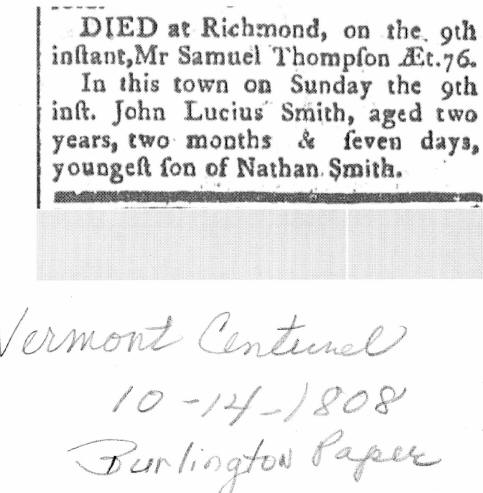 DIED at Richmond, on the 9th
inſtant, Mr Samuel Thompſon Æt. 76.
In this town on Sunday the 9th
inſt. John Lucius Smith, aged two
years, two months & ſeven days,
youngeſt ſon of Nathan Smith.
Vermont Centinel
10-14-1808
Burlington Paper